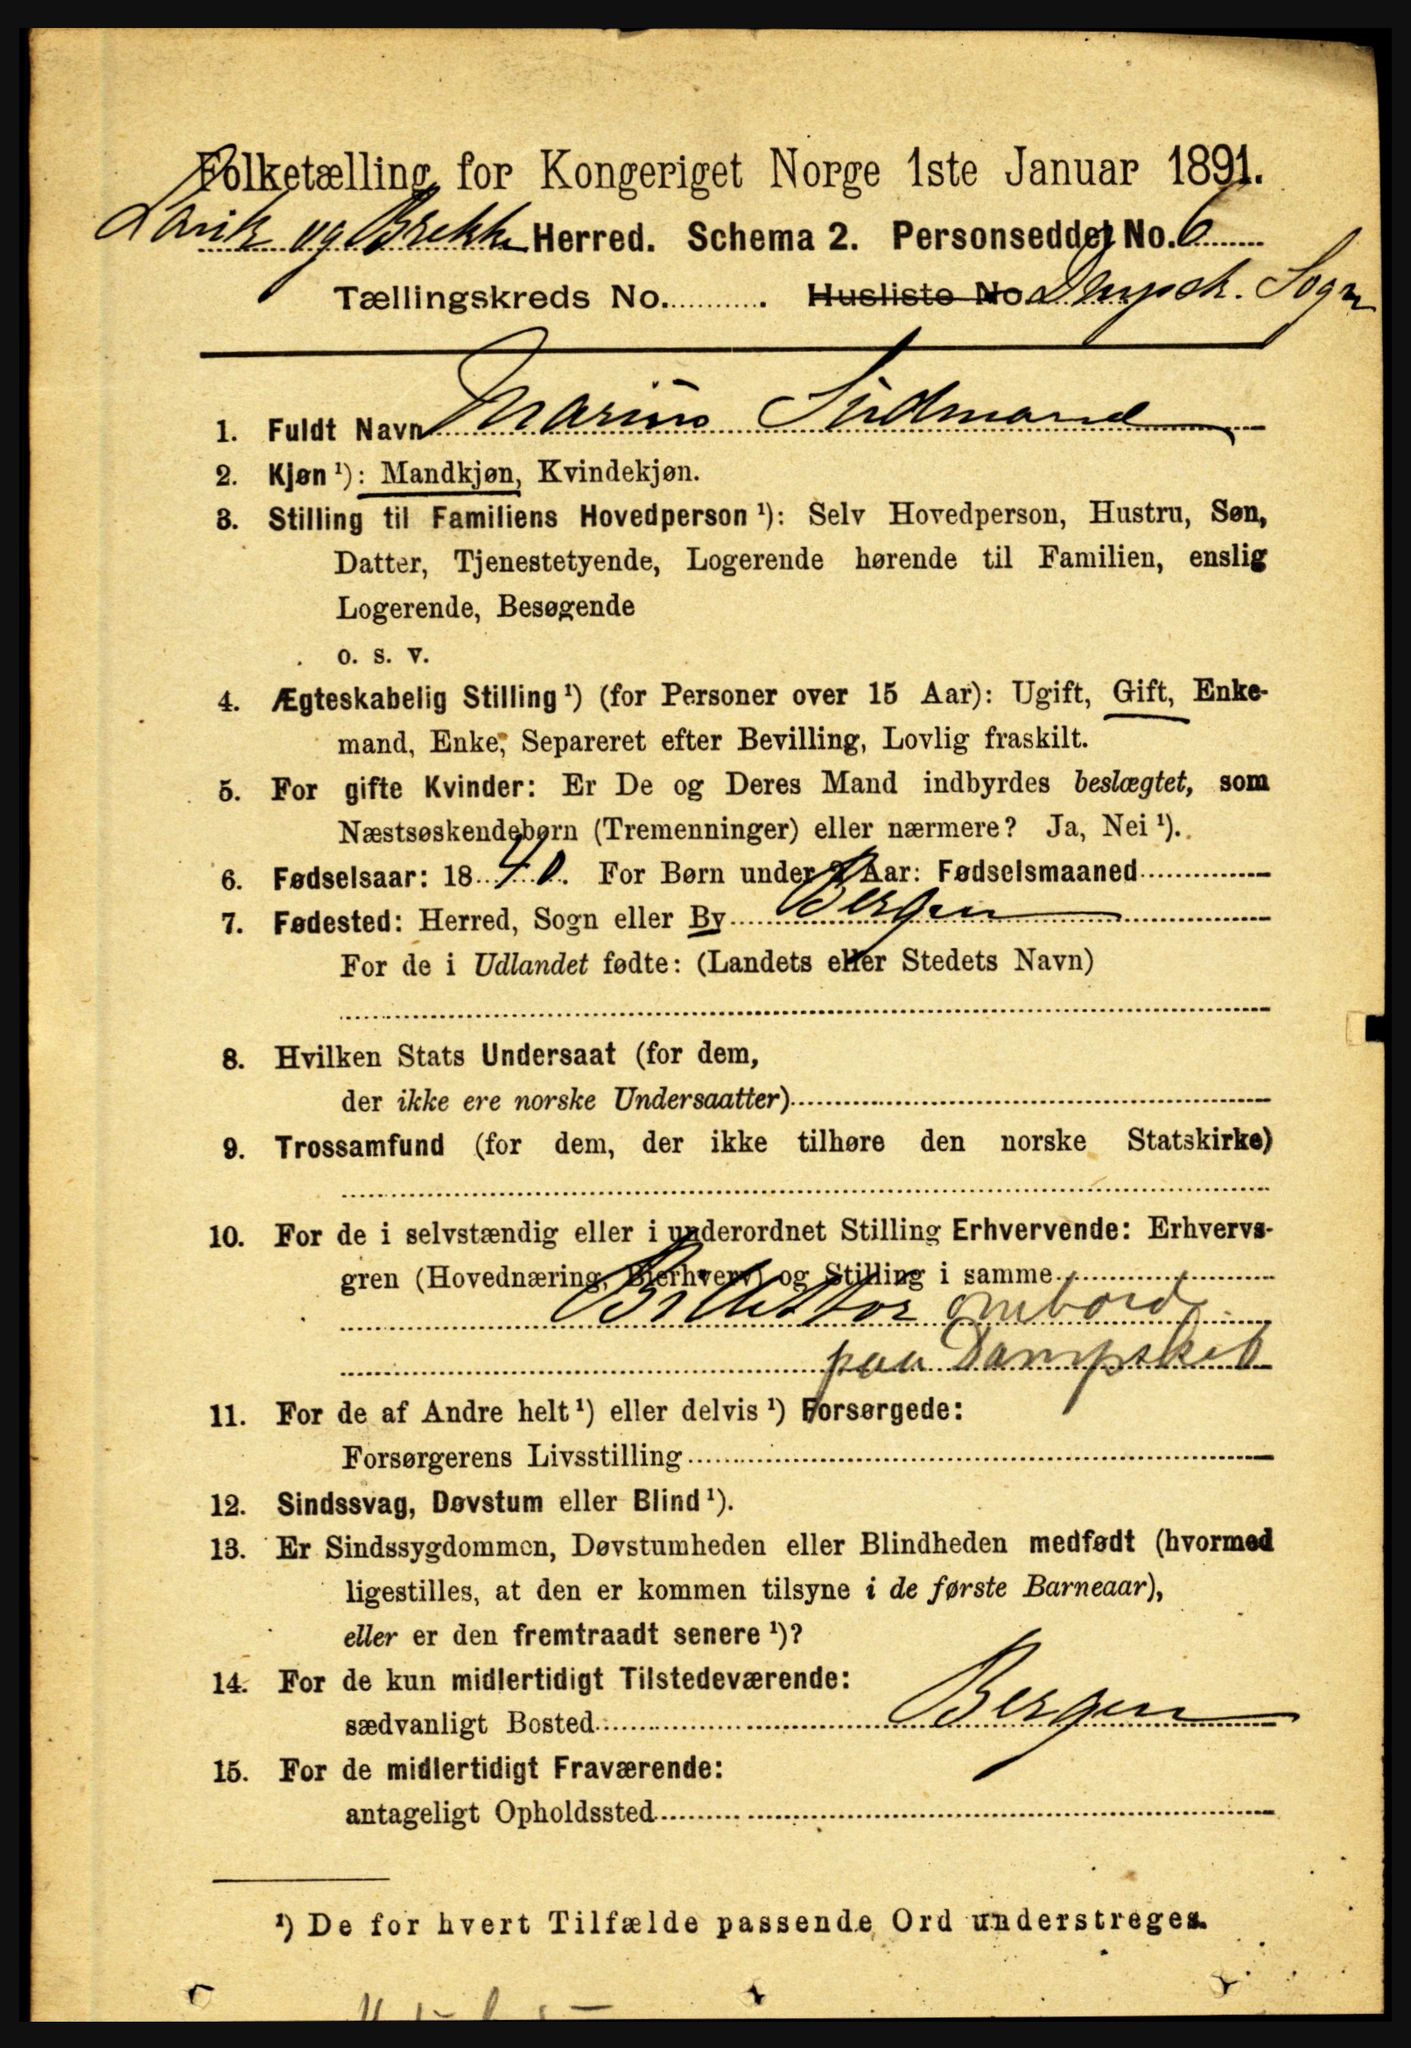 Folketælling for Kongeriget Norge 1ste Januar 1891.
Lavik og Brekke Herred. Schema 2. Personseddel No. 6
Tællingskreds No. Husliste No Dmpsk. Sogn
1. Fuldt Navn Marius Sindmand
2. Kjøn ¹): Mandkjøn, Kvindekjøn.
3. Stilling til Familiens Hovedperson ¹): Selv Hovedperson, Hustru, Søn,
Datter, Tjenestetyende, Logerende hørende til Familien, enslig
Logerende, Besøgende
o. s. v.
4. Ægteskabelig Stilling ¹) (for Personer over 15 Aar): Ugift, Gift, Enke-
mand, Enke, Separeret efter Bevilling, Lovlig fraskilt.
5. For gifte Kvinder: Er De og Deres Mand indbyrdes beslægtet, som
Næstsøskendebørn (Tremenninger) eller nærmere? Ja, Nei ¹).
6. Fødselsaar: 1840. For Børn under 2 Aar: Fødselsmaaned
7. Fødested: Herred, Sogn eller By Bergen
For de i Udlandet fødte: (Landets eller Stedets Navn)
8. Hvilken Stats Undersaat (for dem,
der ikke ere norske Undersaatter)
9. Trossamfund (for dem, der ikke tilhøre den norske Statskirke)
10. For de i selvstændig eller i underordnet Stilling Erhvervende: Erhvervs-
gren (Hovednæring, Bierhverv) og Stilling i samme
Billettør ombord
paa Dampskib
11. For de af Andre helt ¹) eller delvis ¹) Forsørgede:
Forsørgerens Livsstilling
12. Sindssvag, Døvstum eller Blind ¹).
13. Er Sindssygdommen, Døvstumheden eller Blindheden medfødt (hvormed
ligestilles, at den er kommen tilsyne i de første Barneaar),
eller er den fremtraadt senere ¹)?
14. For de kun midlertidigt Tilstedeværende:
sædvanligt Bosted Bergen
15. For de midlertidigt Fraværende:
antageligt Opholdssted
¹) De for hvert Tilfælde passende Ord understreges.